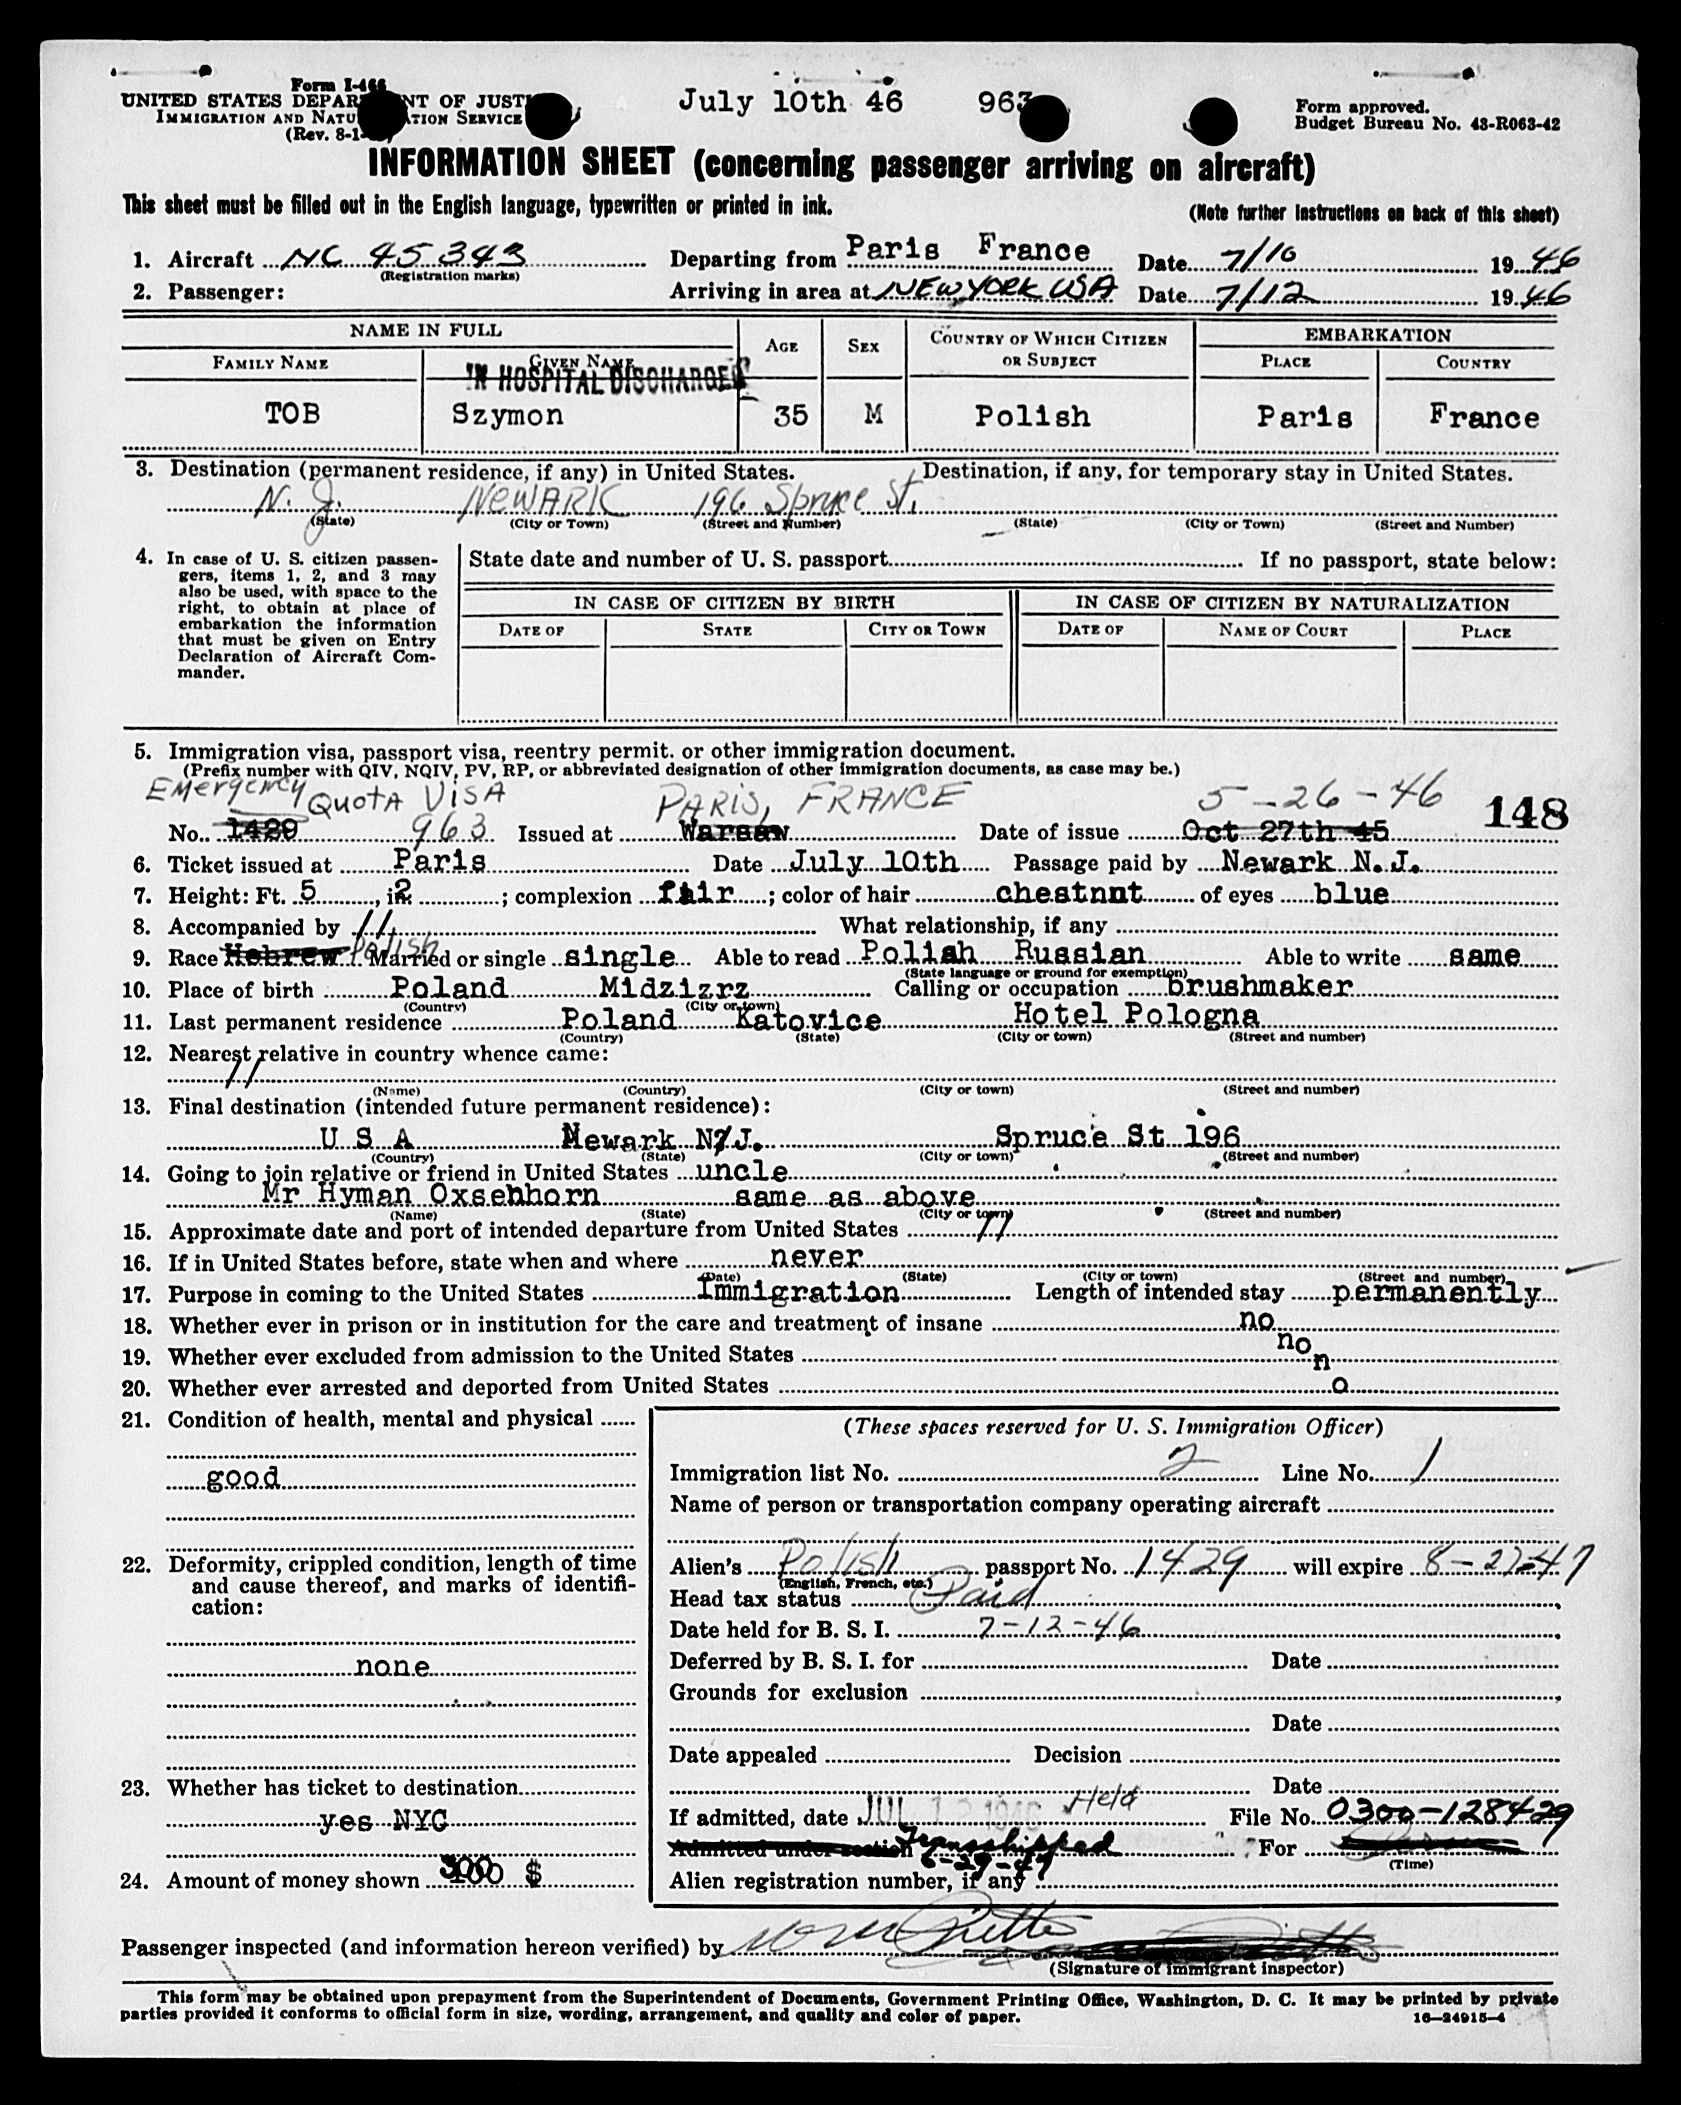 Form I-466
UNITED STATES DEPARTMENT OF JUSTICE
IMMIGRATION AND NATURALIZATION SERVICE
(Rev. 8-1-
July 10th 46 963
Form approved.
Budget Bureau No. 43-R063-42
INFORMATION SHEET (concerning passenger arriving on aircraft)
This sheet must be filled out in the English language, typewritten or printed in ink.
(Note further instructions on back of this sheet)
1. Aircraft NC 45343 Departing from Paris France Date 7/10 1946
(Registration marks)
2. Passenger: Arriving in area at NEW YORK USA Date 7/12 1946
NAME IN FULL AGE SEX COUNTRY OF WHICH CITIZEN OR SUBJECT EMBARKATION
FAMILY NAME GIVEN NAME PLACE COUNTRY
IN HOSPITAL DISCHARGED
TOB Szymon 35 M Polish Paris France
3. Destination (permanent residence, if any) in United States. Destination, if any, for temporary stay in United States.
N. J. NEWARK 196 Spruce St.
(State) (City or Town) (Street and Number) (State) (City or Town) (Street and Number)
4. In case of U. S. citizen passen-
gers, items 1, 2, and 3 may
also be used, with space to the
right, to obtain at place of
embarkation the information
that must be given on Entry
Declaration of Aircraft Com-
mander.
State date and number of U. S. passport If no passport, state below:
IN CASE OF CITIZEN BY BIRTH IN CASE OF CITIZEN BY NATURALIZATION
DATE OF STATE CITY OR TOWN DATE OF NAME OF COURT PLACE
5. Immigration visa, passport visa, reentry permit. or other immigration document.
(Prefix number with QIV, NQIV, PV, RP, or abbreviated designation of other immigration documents, as case may be.)
EMergency QUOTA VISA PARIS, FRANCE 5-26-46 148
No. 1429 963 Issued at Warsaw Date of issue Oct 27th 45
6. Ticket issued at Paris Date July 10th Passage paid by Newark N.J.
7. Height: Ft. 5, i2 ; complexion fair ; color of hair chestnnt of eyes blue
8. Accompanied by // What relationship, if any
9. Race Hebrew Polish Married or single single Able to read Polish Russian Able to write same
(State language or ground for exemption)
10. Place of birth Poland Midzizrz Calling or occupation brushmaker
(Country) (City or town)
11. Last permanent residence Poland Katovice Hotel Pologna
(Country) (State) (City or town) (Street and number)
12. Nearest relative in country whence came:
//
(Name) (Country) (City or town) (Street and number)
13. Final destination (intended future permanent residence):
U S A Newark N/J. Spruce St 196
(Country) (State) (City or town) (Street and number)
14. Going to join relative or friend in United States uncle
Mr Hyman Oxsehhorn same as above
(Name) (State) (City or town) (Street and number)
15. Approximate date and port of intended departure from United States //
16. If in United States before, state when and where never
(Date) (State) (City or town) (Street and number)
17. Purpose in coming to the United States Immigration Length of intended stay permanently
18. Whether ever in prison or in institution for the care and treatment of insane no
19. Whether ever excluded from admission to the United States no
20. Whether ever arrested and deported from United States no
21. Condition of health, mental and physical
good
22. Deformity, crippled condition, length of time
and cause thereof, and marks of identifi-
cation:
none
23. Whether has ticket to destination
yes NYC
24. Amount of money shown 300 $
(These spaces reserved for U. S. Immigration Officer)
Immigration list No. 2 Line No. 1
Name of person or transportation company operating aircraft
Alien's Polish passport No. 1429 will expire 8-27-47
(English, French, etc.)
Head tax status Paid
Date held for B. S. I. 7-12-46
Deferred by B. S. I. for Date
Grounds for exclusion
Date
Date appealed Decision
Date
If admitted, date JUL 12 1946 Held File No. 0300-128429
Admitted under section Transshipped For
6-29-47 (Time)
Alien registration number, if any
Passenger inspected (and information hereon verified) by
(Signature of immigrant inspector)
This form may be obtained upon prepayment from the Superintendent of Documents, Government Printing Office, Washington, D. C. It may be printed by private
parties provided it conforms to official form in size, wording, arrangement, and quality and color of paper.
16—24915-4